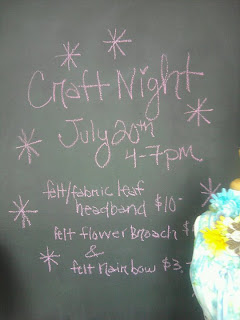 Craft Night
July 20th
4-7pm
felt/fabric leaf
headband $10-
felt flower Broach
&
felt hair bow $3,